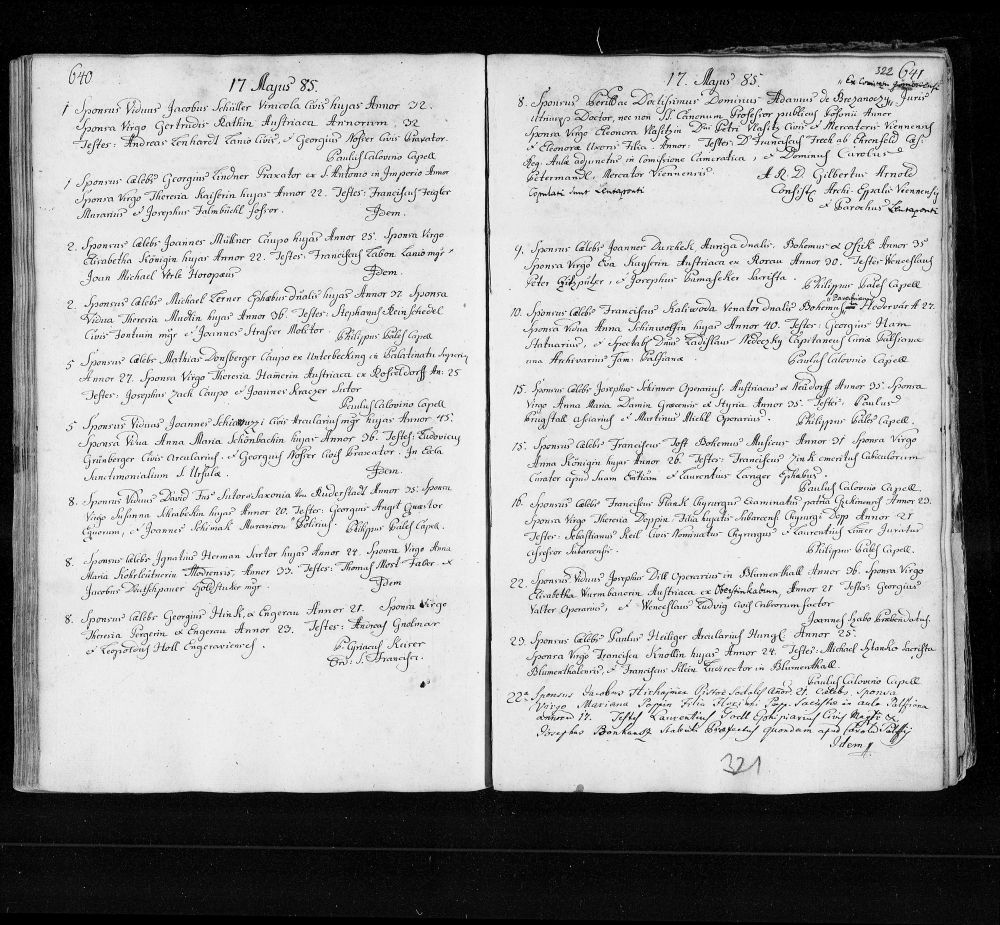 640
17 Majus 85.
1 Sponsus Viduus Jacobus Schüller Vinicola Civis hujas Annor 32.
Sponsa Virgo Gertrudis Rathin Austriaca Annorum 32
Testes: Andreas Lenhardt Lanio Civis, et Georgius Nosser Civis Braxator.
Paulus Calovino Capell
1 Sponsus Cælebs Georgius Lindner Braxator ex S. Antonio in Imperio Annor
Sponsa Virgo Theresia Kaiserin hujas Annor 22. Testes: Franciscus Feigler
Murarius et Josephus Falmbüchl
Idem.
2. Sponsus Cælebs Joannes Müllner Caupo hujas Annor 25. Sponsa Virgo
Elisabetha Königin hujas Annor 22. Testes: Franciscus Labon Lanio mgr
Joan Michael
Idem
2. Sponsus Cælebs Michael Lerner Ephæbus dnalis hujas Annor 37. Sponsa
Vidua Theresia hujas Annor 36. Testes: Stephanus Reinschedel
Civis mgr et Joannes Strasser Molitor.
Philippus Balef Capell
5 Sponsus Cælebs Mathias Donsberger Caupo ex Unterbecking in Palatinatu Superiori
Annor 27. Sponsa Virgo Theresia Hamerin Austriaca ex Rosseldorff An: 25
Testes: Josephus Zack Caupo et Joannes Kraczer Sutor
Paulus Calovino Capell
5 Sponsus Viduus Joannes Civis Arcularius mgr hujas Annor 45.
Sponsa Vidua Anna Maria Schönbachin hujas Annor 36. Testes: Ludovicus
Grünberger Civis Arcularius. et Georgius Nosser Braxator. In Eccla
Sanctimonialium S. Ursulæ
Idem.
8. Sponsus Viduus David Sutor e Saxonia Von Ruderstadt Annor 35. Sponsa
Virgo Susanna Schrabekin hujas Annor 20. Testes: Georgius Angst Quæstor
Equorum, et Joannes Schimak Murariorum
Philippus Balef Capell.
8. Sponsus Cælebs Ignatius Herman Sartor hujas Annor 24. Sponsa Virgo Anna
Maria Modrensis, Annor 33. Testes: Thomas Most Faber et
Jacobus Deütschpauer Goldstuker mgr.
Idem
8. Sponsus Cælebs Georgius Hink, ex Engerau Annor 21. Sponsa Virgo
Theresia Pergerin ex Engerau Annor 23. Testes: Andreas Gnolmar
et Leopoldus Holl Engeraviensis.
P. Cyriacus Keiser
Ord: S. Francisci.
322 641
17. Majus 85.
8. Sponsus Perillus Doctissimus Dominus Adamus de Brezanoczy, Juris
Utriusq Doctor, nec non SS. Canonum Professor publicus Posonii Annor
Sponsa Virgo Eleonora Vlasitzin Dni Petri Vlasitz Civis et Mercatoris Viennensis
et Eleonoræ Uxoris Filia. Annor: Testes: D. Franciscus Trech ab Ehrenfeld Cæs:
Reg: Aulæ adjunctus in Comissione Cameratica, et Dominus Carolus
Petermandl, Mercator Viennensis.
A R. D. Gilbertus Arnold
Copulati sunt Leutaponti
Consist Archi-Eppalis Viennensis
et Parochus Leutaponti
9. Sponsus Cælebs Joannes Durchek Auriga dnalis. Bohemus ex Annor 35
Sponsa Virgo Eva Kayserin Austriaca ex Rorau Annor 30. Testes: Wenceslaus
Peter et Josephus Pumaseker Sacrista.
Philippus Balef Capell
10. Sponsus Cælebs Franciscus Kaliwoda Venator dnalis Bohemus Hedervár A. 27.
Sponsa Vidua Anna Schinwolfin hujas Annor 40. Testes: Georgius Ham
Statuarius, et Spectabs Dnus Ladislaus Nedeczky Capitaneus Curiæ Palfianæ
una Archivarius Fam: Palfianæ.
Paulus Calovino Capell
15. Sponsus Cælebs Josephus Schirmer Operarius. Austriacus ex Neüdorff Annor 35. Sponsa
Virgo Anna Maria Damin Græcensis ex Styria Annor 35. Testes: Paulus
Prugstall et Martinus Michl Operarius.
Philippus Balef Capell.
15. Sponsus Cælebs Franciscus Toft Bohemus Musicus Annor 31 Sponsa Virgo
Anna Königin hujas Annor 26. Testes: Franciscus Zink emeritus Cubiculorum
Curator apud Suam Emtiam et Laurentius Langer Ephæbus.
Paulus Calovino Capell.
16. Sponsus Cælebs Franciscus Plank Chyrurgus Examinatus patria Annor 23.
Sponsa Virgo Theresia Deppin, Filia hujatis Subarcensis Chyrurgi Depp Annor 21
Testes: Sebastianus Keil Civis Nominatus Chyrurgus et Laurentius Limer Juratus
Assessor Subarcensis.
Philippus Balef Capell.
22. Sponsus Viduus Josephus Dill Operarius in Blumenthall Annor 36. Sponsa Virgo
Elisabetha Wurmbaurin Austriaca ex Annor 21 Testes: Georgius
Valter Operarius, et Wenceslaus Ludvig Cribrorum factor
Joannes Szabo Præbendatus.
23. Sponsus Cælebs Paulus Heiliger Arcularius Hung. Annor 25.
Sponsa Virgo Francisca Knollin hujas Annor 24. Testes: Michael Sztanko Sacrista
Blumenthalensis, et Franciscus Klein Ludirector in Blumenthall.
Paulus Calovino Capell.
22a Sponsus Jacobus Annor. 21. Cælebs. Sponsa
Virgo Mariana Poppin Filia Popp in aula Palffiana
annorum 17. Testes Laurentius Ephipiarius Civis
Josephus Bonhardt Stabuli Præfectus quondam apud Palffij
Idem
321